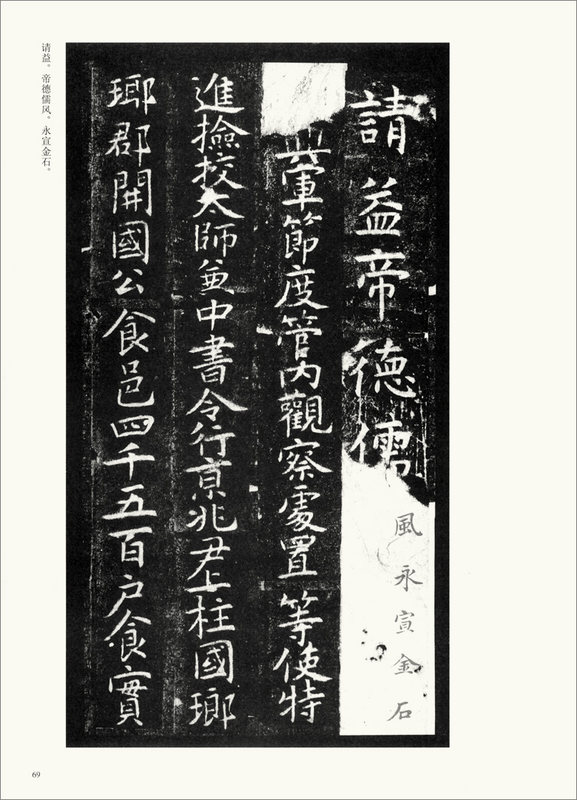 请益。帝德儒风。永宣金石。
請益帝德儒風永宣金石
軍節度管内觀察處置等使特
進撿挍太師兼中書令行京兆尹上柱國瑯
瑯郡開國公食邑四千五百户食實
69